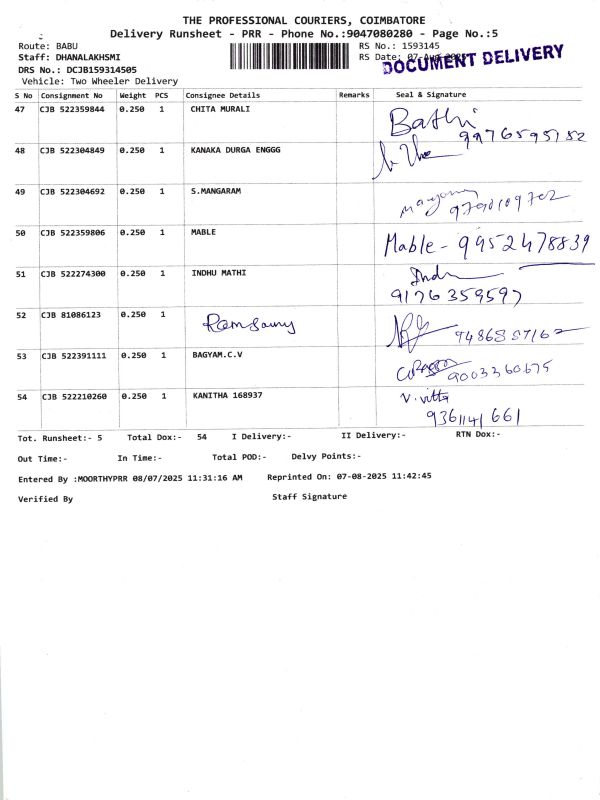 THE PROFESSIONAL COURIERS, COIMBATORE
Delivery Runsheet - PRR - Phone No.:9047080280 - Page No.:5
Route: BABU RS No.: 1593145
Staff: DHANALAKHSMI RS Date: 07-Aug-2025
DOCUMENT DELIVERY
DRS No.: DCJB159314505
Vehicle: Two Wheeler Delivery
S No Consignment No Weight PCS Consignee Details Remarks Seal & Signature
47 CJB 522359844 0.250 1 CHITA MURALI Bathi
9976595752
48 CJB 522304849 0.250 1 KANAKA DURGA ENGGG
49 CJB 522304692 0.250 1 S.MANGARAM
50 CJB 522359806 0.250 1 MABLE Mable - 9952478839
51 CJB 522274300 0.250 1 INDHU MATHI Indu
9176359597
52 CJB 81086123 0.250 1 Ramsamy
53 CJB 522391111 0.250 1 BAGYAM.C.V
9003360675
54 CJB 522210260 0.250 1 KANITHA 168937 V. vitta
9361141661
Tot. Runsheet:- 5 Total Dox:- 54 I Delivery:- II Delivery:- RTN Dox:-
Out Time:- In Time:- Total POD:- Delvy Points:-
Entered By :MOORTHYPRR 08/07/2025 11:31:16 AM Reprinted On: 07-08-2025 11:42:45
Verified By Staff Signature